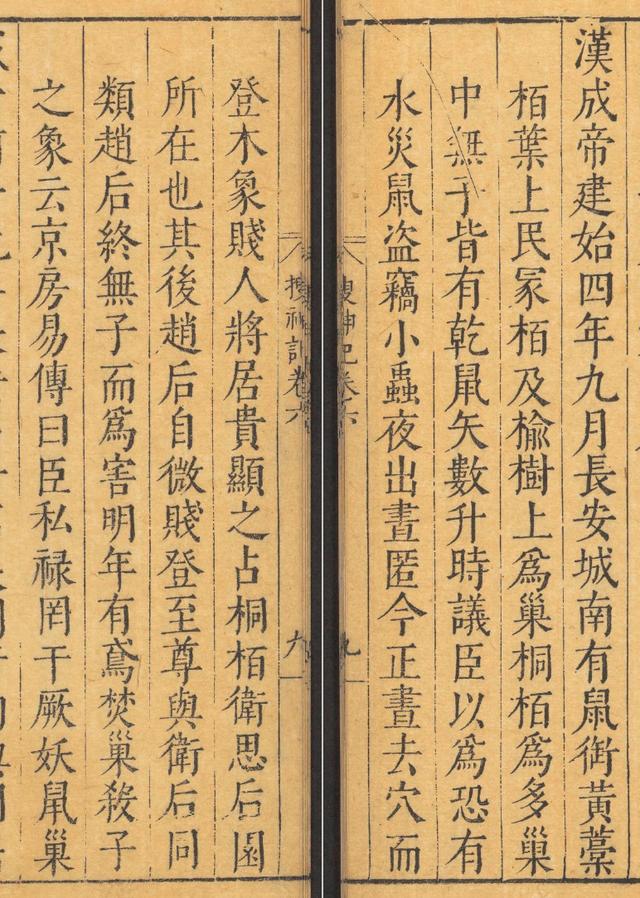 漢成帝建始四年九月長安城南有鼠銜黃藁
栢葉上民冢栢及榆樹上爲巢桐栢爲多巢
中無子皆有乾鼠矢數升時議臣以爲恐有
水災鼠盜竊小蟲夜出晝匿今正晝去穴而
搜神記卷六
九
搜神記卷六
九
登木象賤人將居貴顯之占桐栢衛思后園
所在也其後趙后自微賤登至尊與衛后同
類趙后終無子而爲害明年有鳶焚巢殺子
之象云京房易傳曰臣私祿罔干厥妖鼠巢